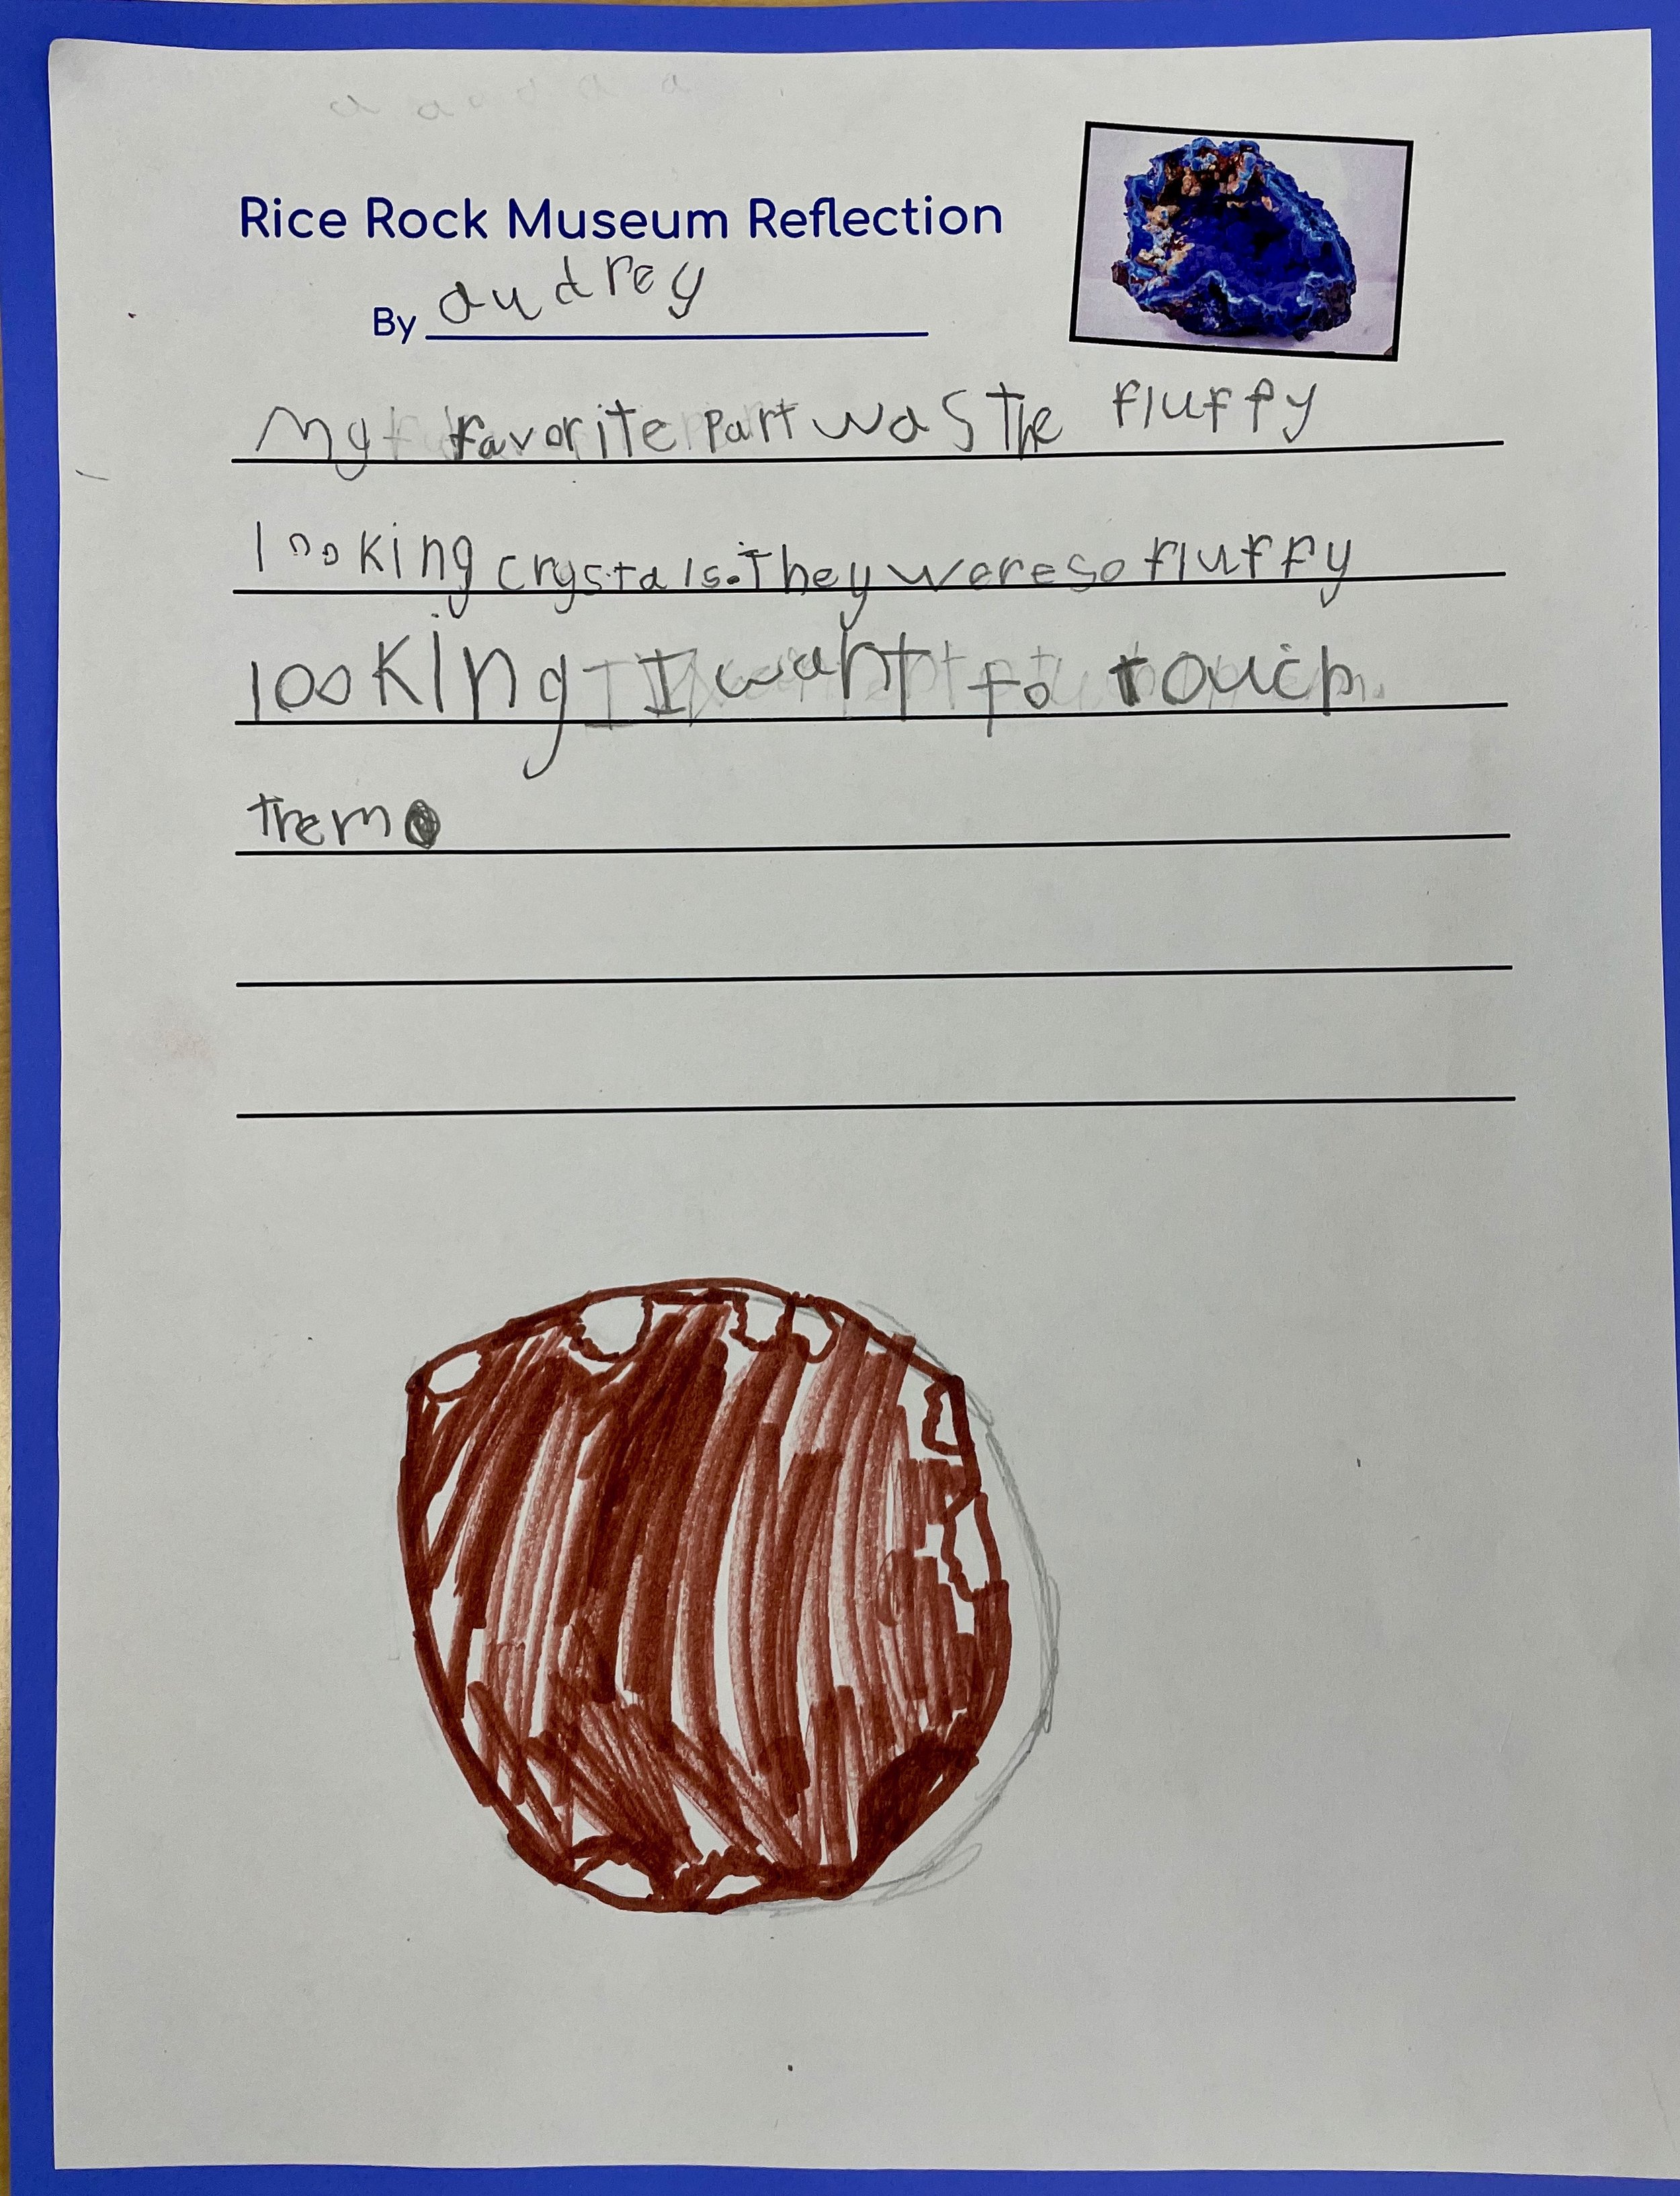 Rice Rock Museum Reflection
By audrey
My favorite part was The fluffy
looking crystals. They were so fluffy
looking I want to touch
them.